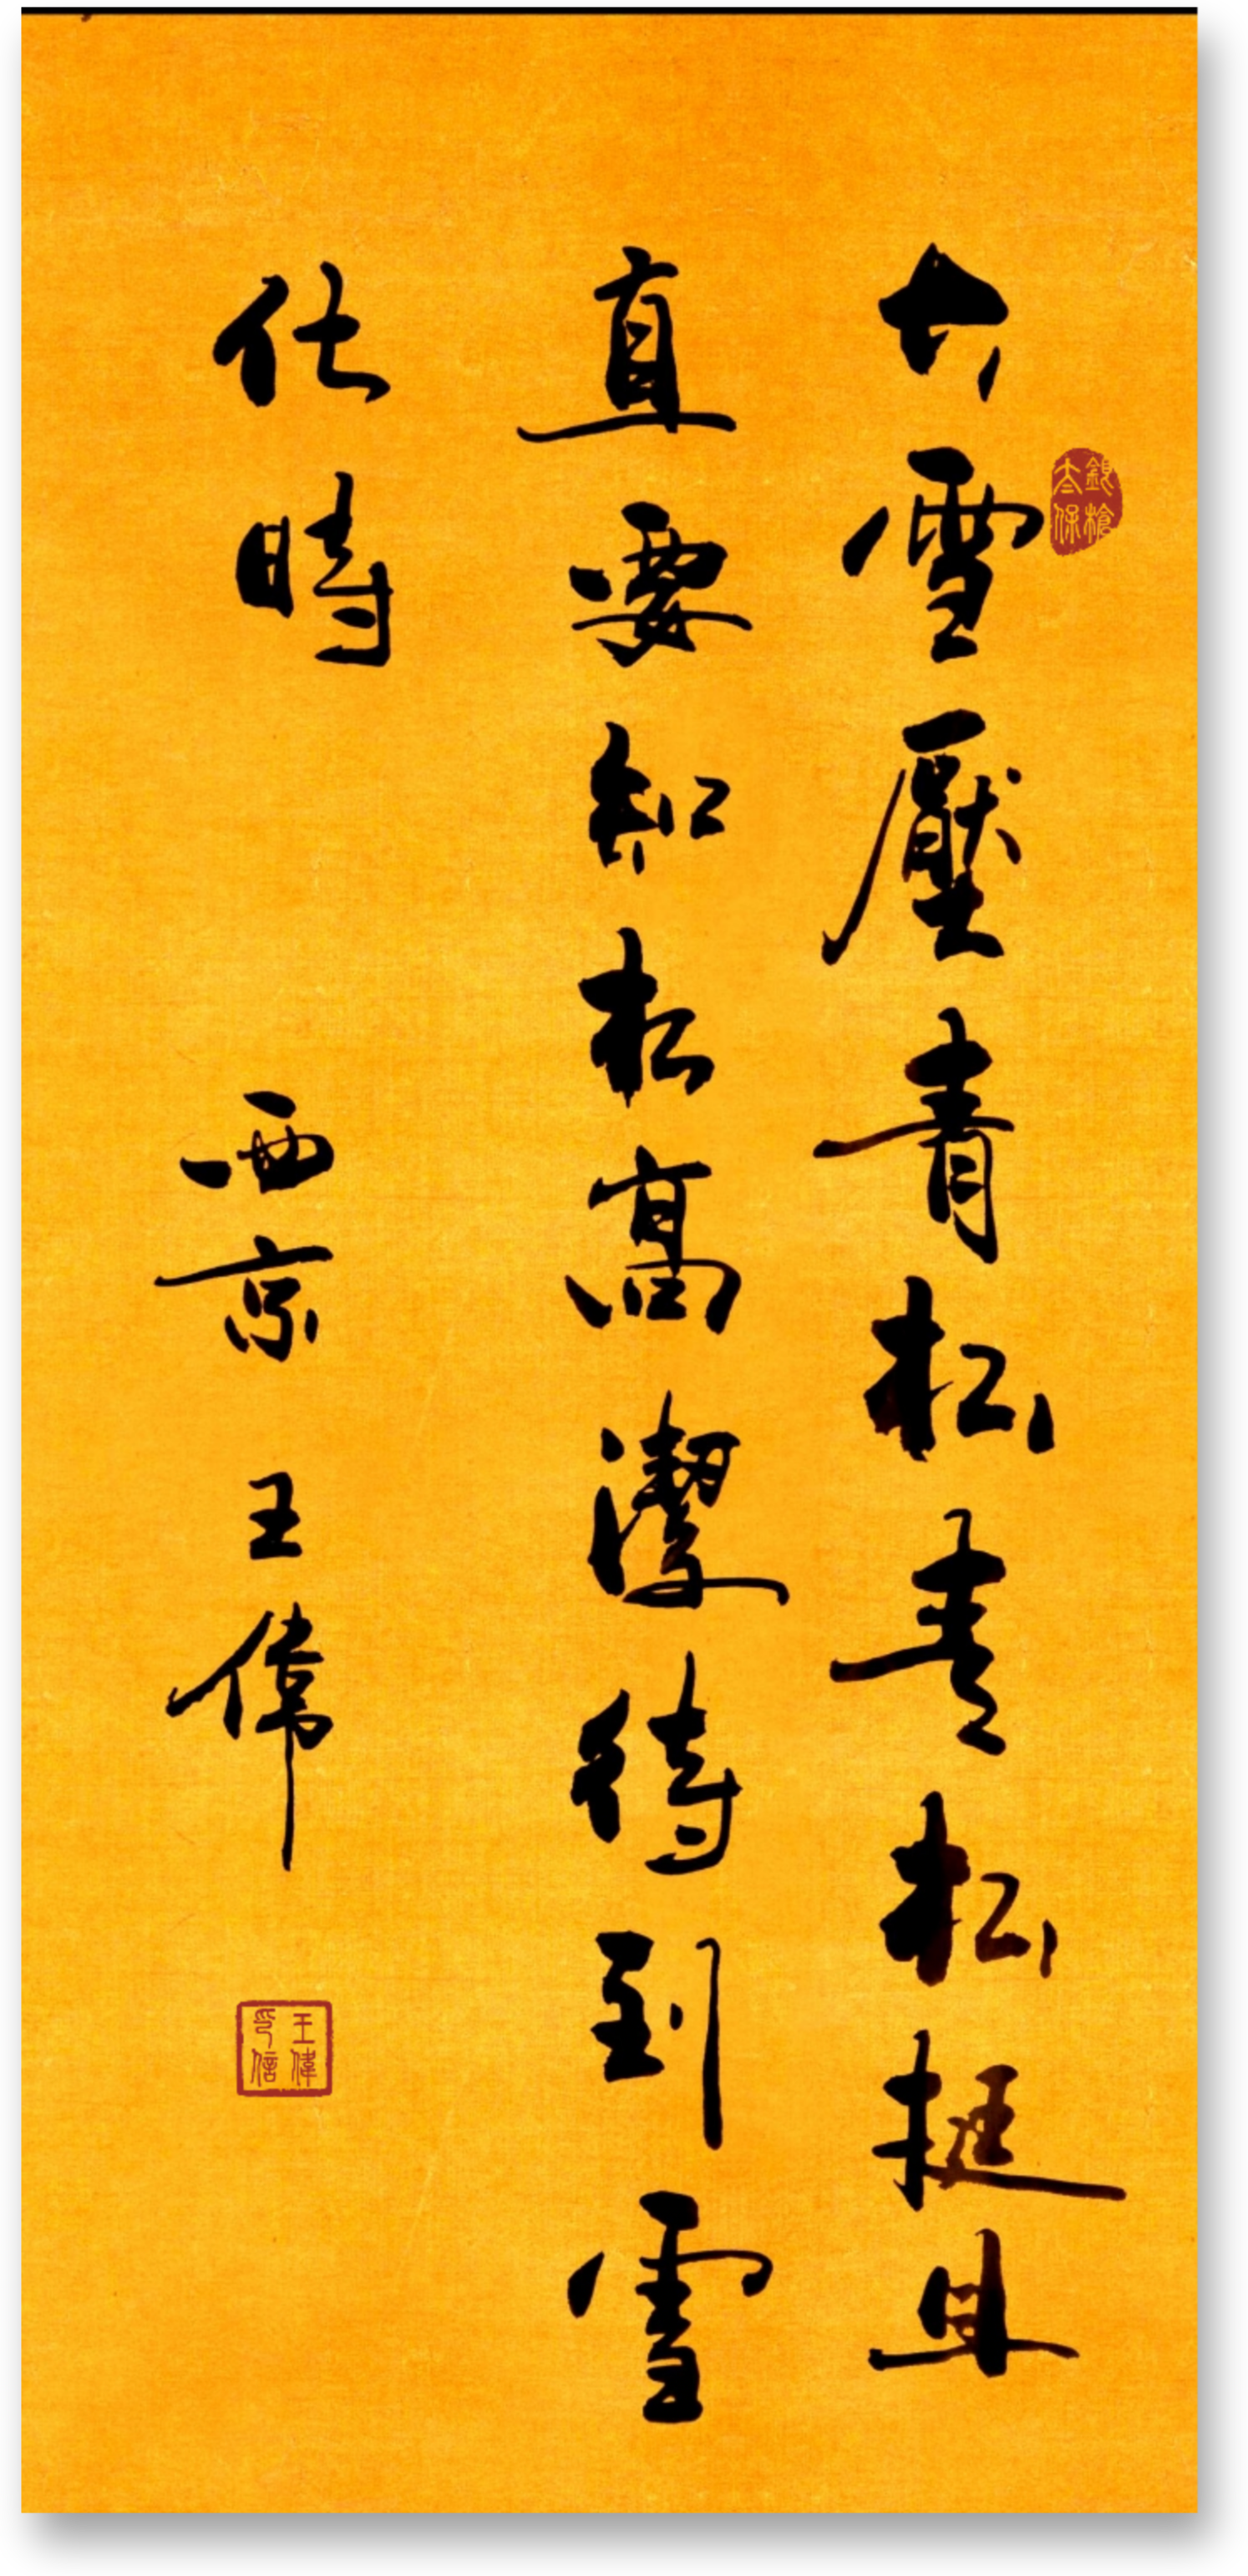 大雪壓青松青松挺且
直要知松高潔待到雪
化時
西京 王偉
銀槍太保
王偉印信